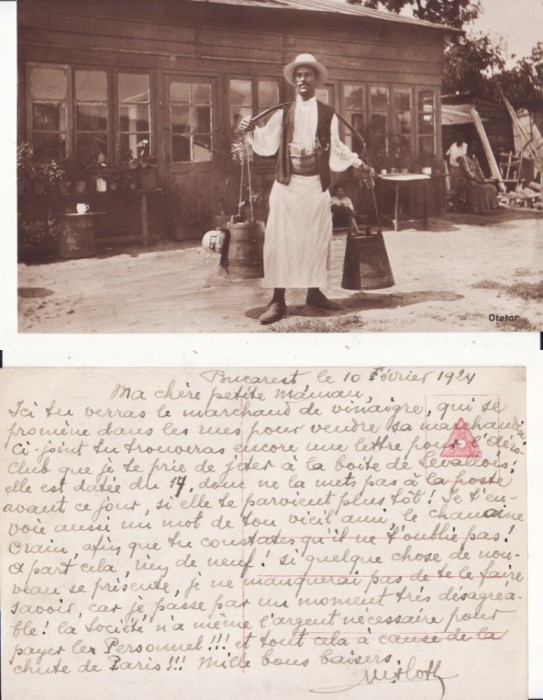 Otetar
Bucarest le 10 Février 1924
Ma chère petite Maman,
Ici tu verras le marchand de vinaigre, qui se
promène dans les rues pour vendre sa marchandise.
Ci-joint tu trouveras encore une lettre pour l'Aéro-
Club que je te prie de jeter à la boite de Levallois;
elle est datée du 14, donc ne la mets pas à la poste
avant ce jour, si elle te parvient plus tôt! Je t'en-
voie aussi un mot de ton vieil ami, le chanoine
Orain, afin que tu constates qu'il ne t'oublie pas!
A part cela, rien de neuf! si quelque chose de nou-
veau se présente, je ne manquerai pas de te le faire
savoir, car je passe par un moment très désagréa-
ble! la Société n'a même l'argent nécessaire pour
payer le Personnel!!! et tout cela à cause de la
chute de Paris!!! Mille bons baisers.